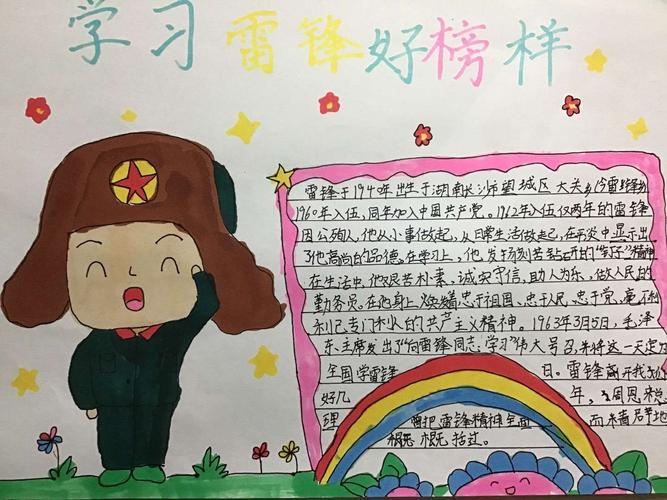 学习雷锋好榜样
雷锋于1940年出生于湖南长沙市望城区大关乡(今雷锋
1960年入伍,同年加入中国共产党。1962年入伍仅两年的雷锋
因公殉人,他从小事做起,从日常生活做起,在平淡中显示出
了他高尚的品德。在学习上,他发扬刻苦钻研的“钉子”精神
在生活中,他艰苦朴素、诚实守信,助人为乐、做人民的
勤务员。在他身上,焕着忠于祖国、忠于人民、忠于党,毫不利
利己专门利人的共产主义精神。1963年3月5日,毛泽
东主席发出了“向雷锋同志学习”伟大号召,并将这一天定为
全国学雷锋 日。雷锋离开我们
好几 年,周恩来总
理 曾把雷锋精神全面 而精辟地
概括过。